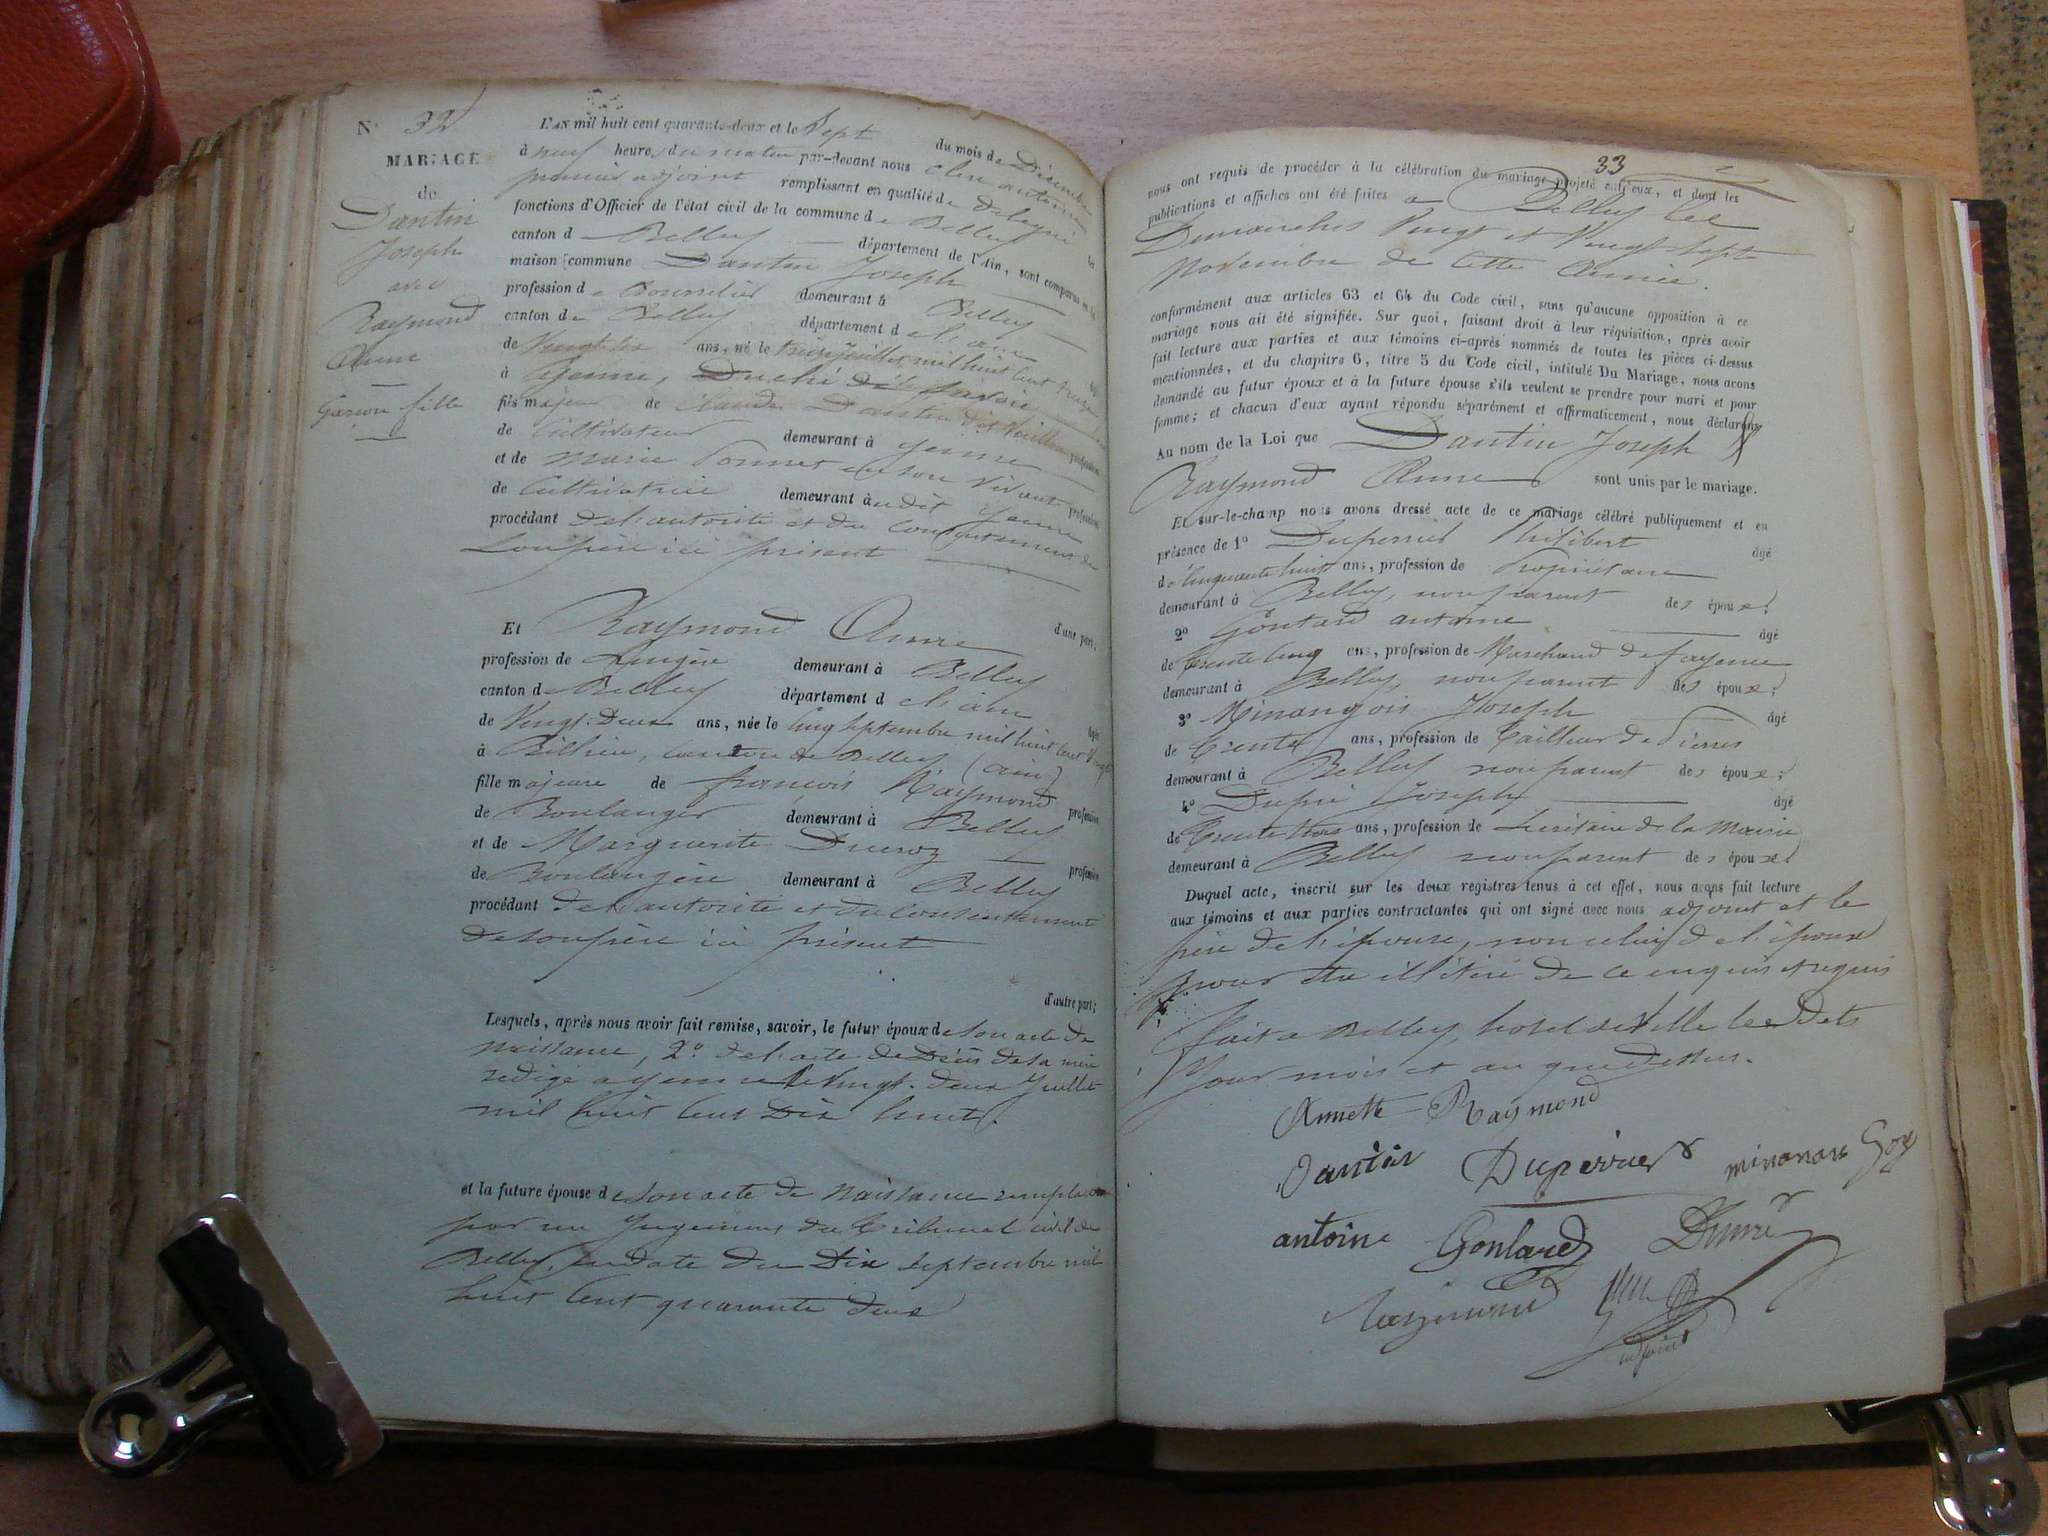 N° 32
MARIAGE
de
Dantin
Joseph
avec
Raymond
Anne
Garçon fille
L'AN mil huit cent quarante-deux et le Sept du mois de Décembre
à neuf heures du matin par-devant nous
premier adjoint remplissant en qualité de délégué les
fonctions d'Officier de l'état civil de la commune de Belley
canton d Belley département de l'Ain, sont comparus en la
maison commune Dantin Joseph
profession de Bourrelier demeurant à Belley
canton de Belley département d el'ain âgé
de Vingt six ans, né le treize Juillet mil huit cent seize
à Yenne, Duché de Savoie
fils majeur de Claude Dantin profession
de Cultivateur demeurant à Yenne
et de Marie Bonnet en son vivant profession
de Cultivatrice demeurant à udit Yenne
procédant de l'autorité et du Consentement de
Son père ici présent
d'une part;
Et Raymond Anne
profession de Lingère demeurant à Belley
canton de Belley département d el'ain âgée
de Vingt-Deux ans, née le Cinq Septembre mil huit Cent Vingt
à Billieu, Canton de Belley (ain)
fille majeure de françois Raymond profession
de Boulanger demeurant à Belley
et de Marguerite Ducroz profession
de Boulangère demeurant à Belley
procédant de l'autorité et du Consentement
de son père ici présent
d'autre part;
Lesquels, après nous avoir fait remise, savoir, le futur époux de Son acte de
naissance, 2° de l'acte de Décès de sa mère
rédigé a yenne le Vingt-deux Juillet
mil huit Cent Dix huit.
et la future épouse de son acte de Naissance remplacé
par un Jugement du Tribunal civil de
Belley, en date du Dix septembre mil
huit Cent quarante deux
33
nous ont requis de procéder à la célébration du mariage projeté entr'eux, et dont les
publications et affiches ont été faites a Belley les
Dimanches Vingt et Vingt-sept
Novembre de Cette Année.
conformément aux articles 63 et 64 du Code civil, sans qu'aucune opposition à ce
mariage nous ait été signifiée. Sur quoi, faisant droit à leur réquisition, après avoir
fait lecture aux parties et aux témoins ci-après nommés de toutes les pièces ci-dessus
mentionnées, et du chapitre 6, titre 5 du Code civil, intitulé Du Mariage, nous avons
demandé au futur époux et à la future épouse s'ils veulent se prendre pour mari et pour
femme; et chacun d'eux ayant répondu séparément et affirmativement, nous déclarons
Au nom de la Loi que Dantin Joseph &
Raymond Anne sont unis par le mariage.
Et sur-le-champ nous avons dressé acte de ce mariage célébré publiquement et en
présence de 1° Duperrier Philibert âgé
de Cinquante huit ans, profession de Propriétaire
demeurant à Belley, non parent des époux;
2° Gontard antoine âgé
de Trente Cinq ans, profession de Marchand de fayence
demeurant à Belley, non parent des époux;
3° Minangois Joseph âgé
de Trente ans, profession de Tailleur de Pierres
demeurant à Belley non parent des époux;
4° Dupré Joseph âgé
de Trente trois ans, profession de Secrétaire de la Mairie
demeurant à Belley non parent des époux
Duquel acte, inscrit sur les deux registres tenus à cet effet, nous avons fait lecture
aux témoins et aux parties contractantes qui ont signé avec nous adjoint et le
père de l'épouse, non celui de l'époux
pour être illitéré de ce enquis et requis
Fait a Belley, hotel de Ville les dits
Jour mois et an que dessus.
Annette Raymond
Dantin Duperrier
antoine Gontard Dupré
Raymond
adjoint